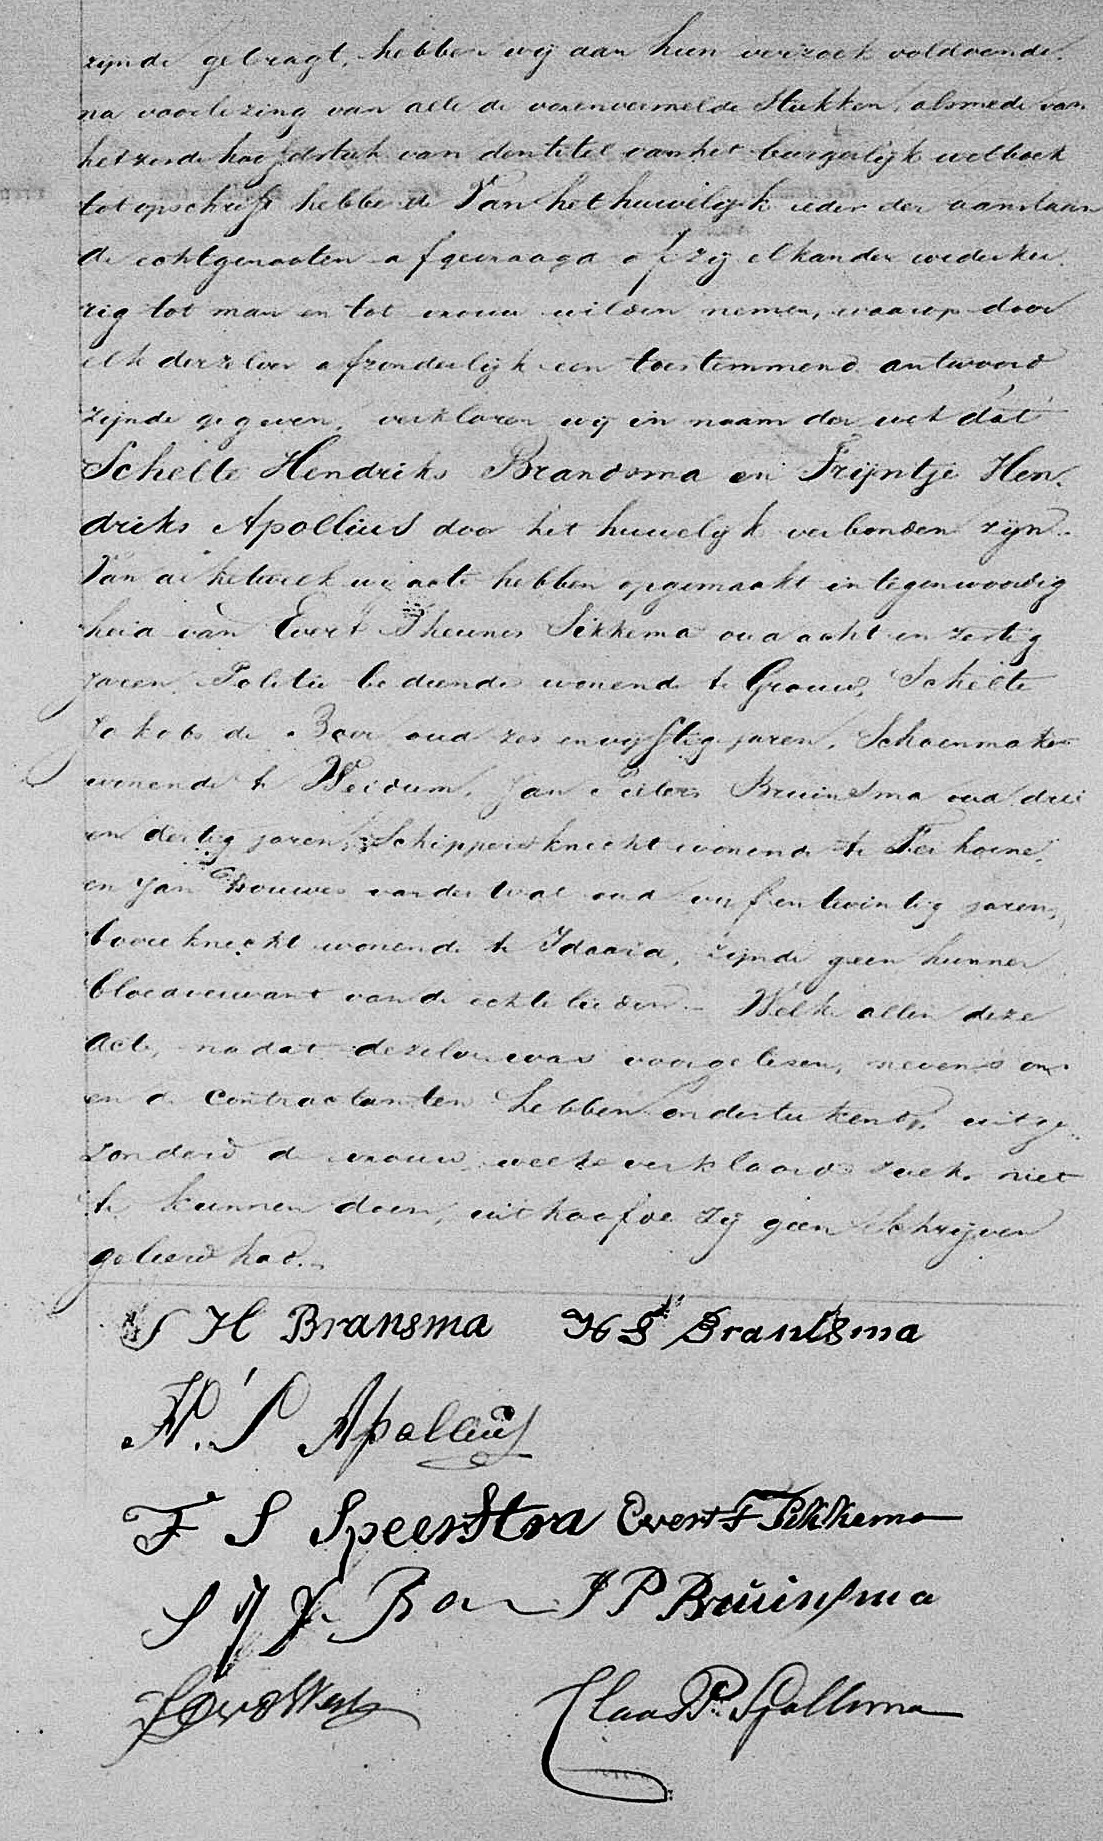 zijnde gebragt, hebben wij aan hun verzoek voldoende,
na voorlezing van alle de vorenvermelde stukken, alsmede van
het zesde hoofdstuk van den titel van het burgerlijk wetboek
tot opschrift hebbende Van het huwelijk ieder der aanstaan
de echtgenooten afgevraagd of zij elkander wederkee
rig tot man en tot vrouw wilden nemen, waarop door
elk derzelver afzonderlijk een toestemmend antwoord
zijnde gegeven, verklaren wij in naam der wet dat
Schelte Hendriks Brandsma en Trijntje Hen,
driks Apollius door het huwelijk verbonden zijn.
Van al hetwelk wij acte hebben opgemaakt in tegenwoordig
heid van Evert Theunes Sikkema oud acht en zestig
jaren, Politie bediende wonende te Grouw, Schelte
Jakobs de Boer oud zes en vijftig jaren, Schoenmaker
wonende te Weidum, Jan Pieters Bruinsma oud drie
en dertig jaren, Schippersknecht wonende te Terhorne,
en Jan Douwes van der Wal oud vijf en twintig jaren,
boereknecht wonende te Idaard, zijnde geen hunner
bloedverwant van de echtelieden.- Welke allen deze
acte, nadat dezelve was voorgelezen, nevens ons
en de contractanten hebben onderteekend, uitge,
zonderd de vrouw welke verklaard zulks niet
te kunnen doen, uit hoofde zij geen schrijven
geleerd had.
S H Bransma H S Brantsma
H. S Apollius
F S Speerstra Evert T Sikkema
S J de Boer J P Bruinsma
Claas P.